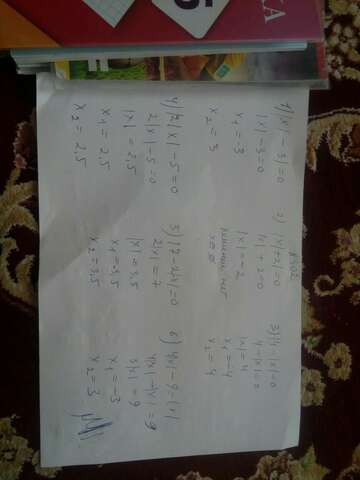 №302
1) |x| - 3 = 0
|x| - 3 = 0
x₁ = -3
x₂ = 3
2) |x| + 2 = 0
|x| + 2 = 0
|x| = -2
решений нет
x = ∅
3) 4 - |x| = 0
4 - |x| = 0
|x| = 4
x₁ = -4
x₂ = 4
4) 2|x| - 5 = 0
2|x| - 5 = 0
|x| = 2,5
x₁ = 2,5
x₂ = 2,5
5) 7 - 2|x| = 0
2|x| = 7
|x| = 3,5
x₁ = -3,5
x₂ = 3,5
6) 4|x| - 9 = |x|
4|x| - |x| = 9
3|x| = 9
x₁ = -3
x₂ = 3